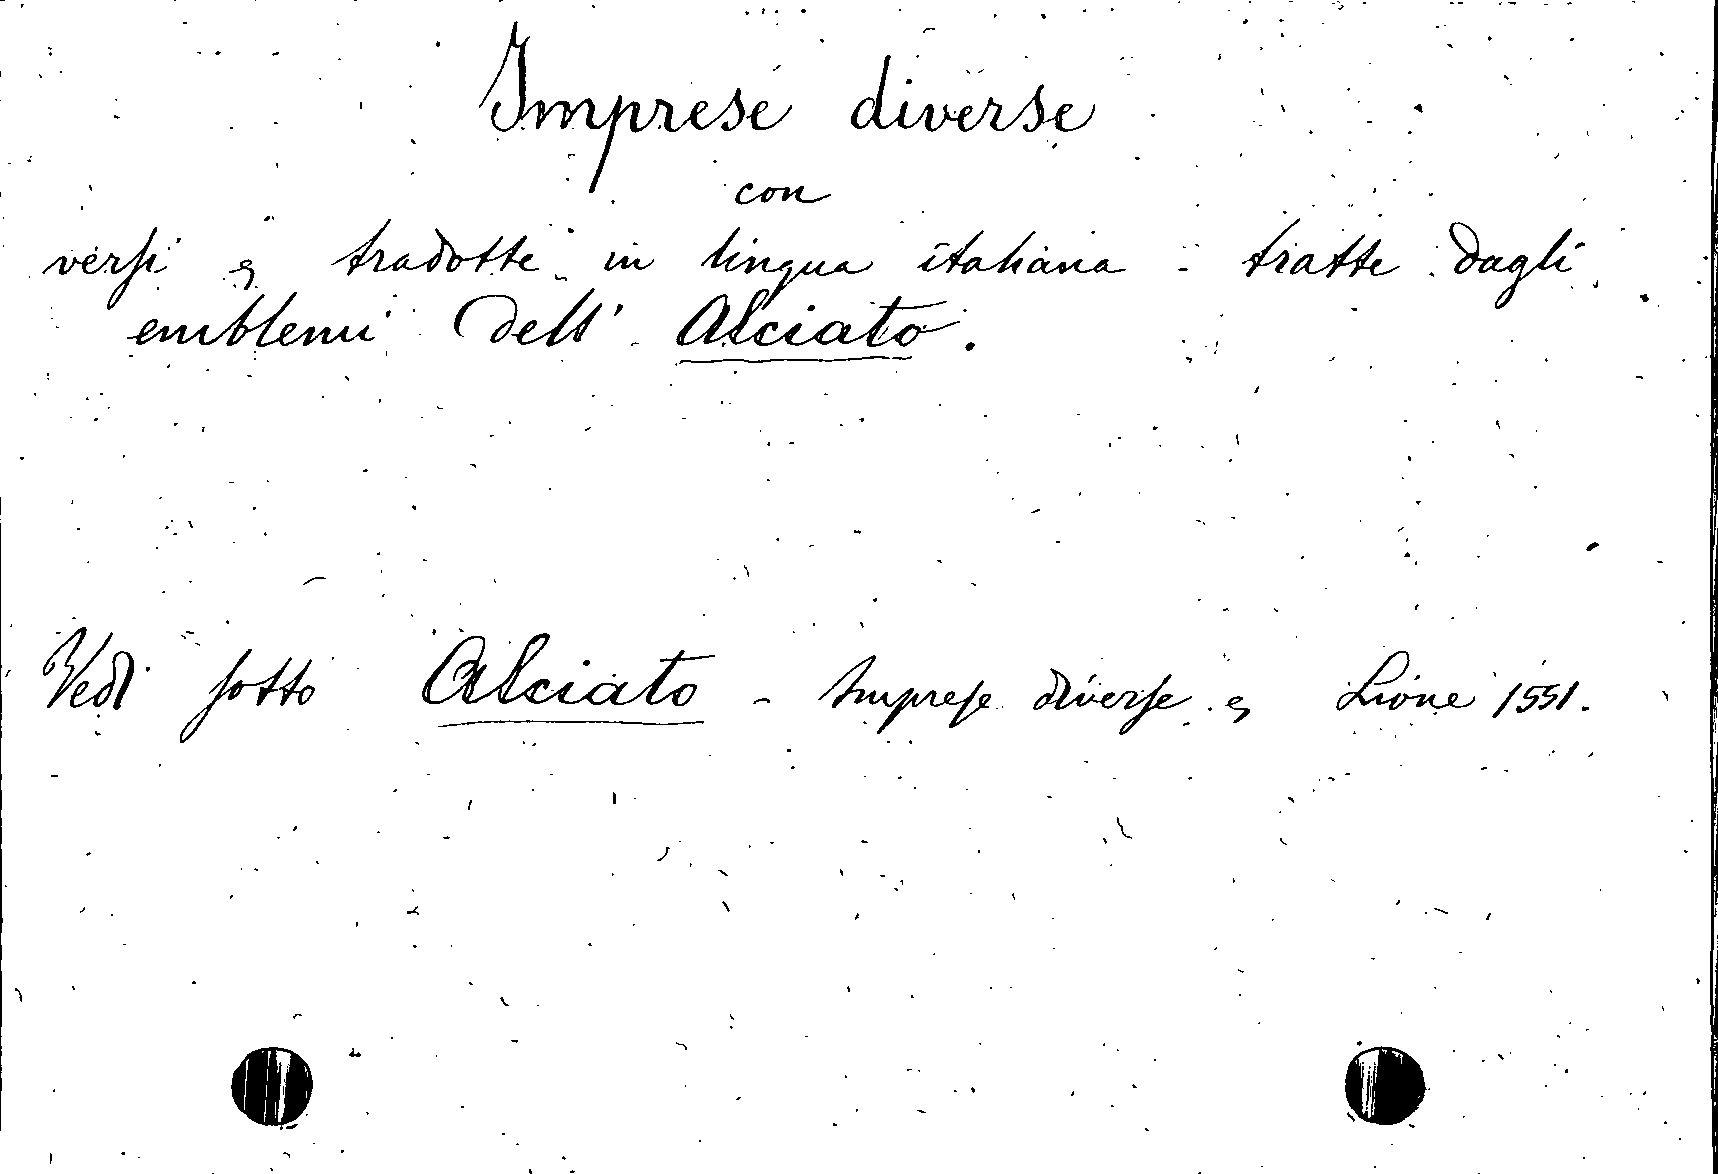 Imprese diverse
con
versi e tradotte in lingua italiana - tratte dagli
emblemi dell' Alciato.
Vedi sotto Alciato - Imprese diverse e Lione 1551.